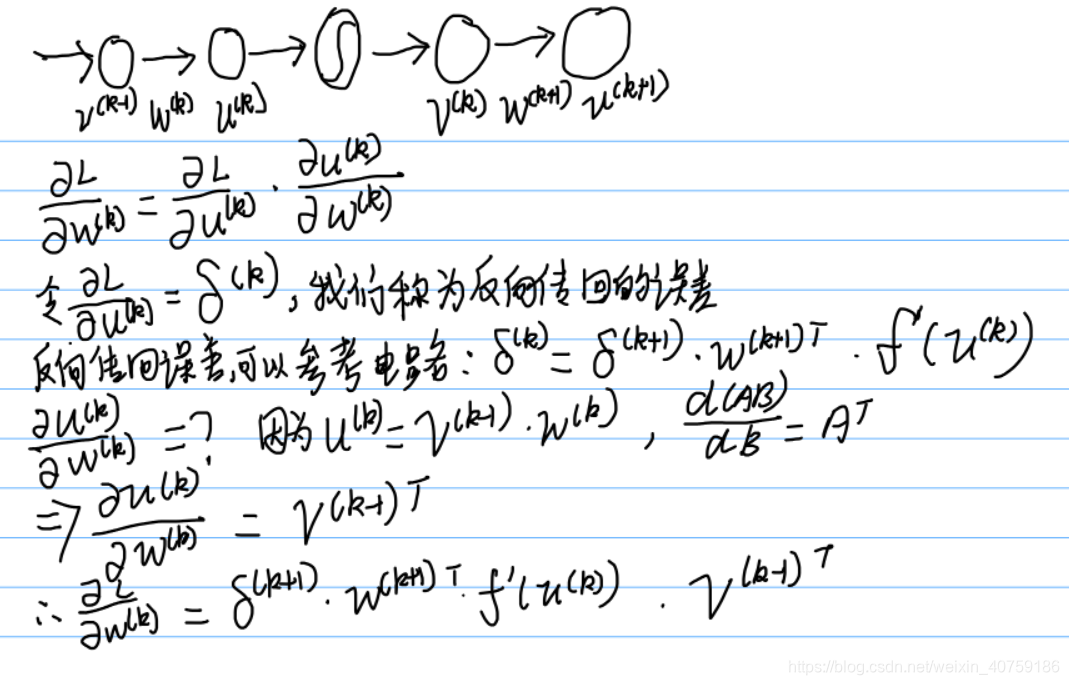 v^(k-1) w^(k) u^(k) v^(k) w^(k+1) u^(k+1)
∂L/∂w^(k) = ∂L/∂u^(k) · ∂u^(k)/∂w^(k)
令 ∂L/∂u^(k) = δ^(k), 我们称为反向传回的误差
反向传回误差,可以参考电路: δ^(k) = δ^(k+1) · w^(k+1)T · f'(u^(k))
∂u^(k)/∂w^(k) = ? 因为 u^(k) = v^(k-1) · w^(k), d(AB)/dB = A^T
=> ∂u^(k)/∂w^(k) = v^(k-1)T
∴ ∂L/∂w^(k) = δ^(k+1) · w^(k+1)T · f'(u^(k)) · v^(k-1)T
https://blog.csdn.net/weixin_40759186